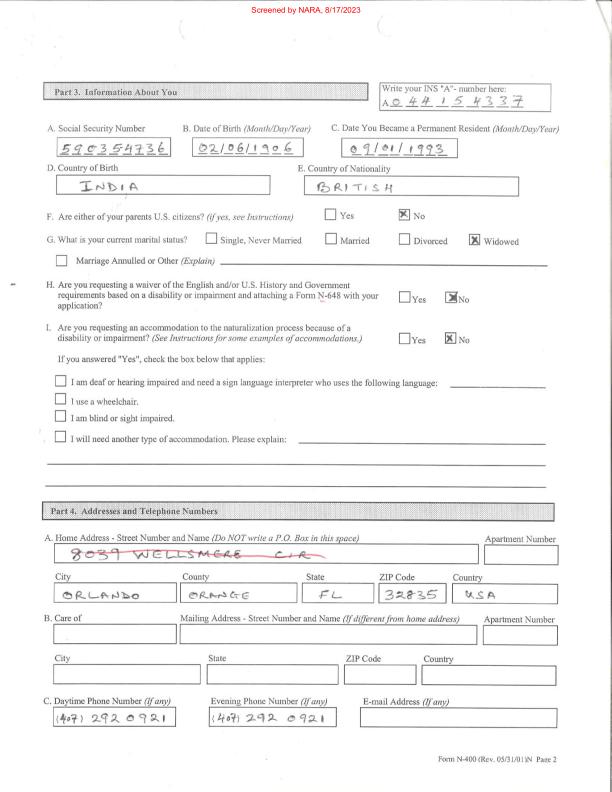 Screened by NARA, 8/17/2023
Part 3. Information About You
Write your INS "A"- number here:
A 0 4 4 1 5 4 3 3 7
A. Social Security Number B. Date of Birth (Month/Day/Year) C. Date You Became a Permanent Resident (Month/Day/Year)
590354736 02/06/1906 09/01/1993
D. Country of Birth E. Country of Nationality
INDIA BRITISH
F. Are either of your parents U.S. citizens? (if yes, see Instructions) Yes No
G. What is your current marital status? Single, Never Married Married Divorced Widowed
Marriage Annulled or Other (Explain)
H. Are you requesting a waiver of the English and/or U.S. History and Government
requirements based on a disability or impairment and attaching a Form N-648 with your
application? Yes No
I. Are you requesting an accommodation to the naturalization process because of a
disability or impairment? (See Instructions for some examples of accommodations.) Yes No
If you answered "Yes", check the box below that applies:
I am deaf or hearing impaired and need a sign language interpreter who uses the following language:
I use a wheelchair.
I am blind or sight impaired.
I will need another type of accommodation. Please explain:
Part 4. Addresses and Telephone Numbers
A. Home Address - Street Number and Name (Do NOT write a P.O. Box in this space) Apartment Number
8039 WELLSMERE CIR
City County State ZIP Code Country
ORLANDO ORANGE FL 32835 USA
B. Care of Mailing Address - Street Number and Name (If different from home address) Apartment Number
City State ZIP Code Country
C. Daytime Phone Number (If any) Evening Phone Number (If any) E-mail Address (If any)
(407) 292 0921 (407) 292 0921
Form N-400 (Rev. 05/31/01)N Page 2